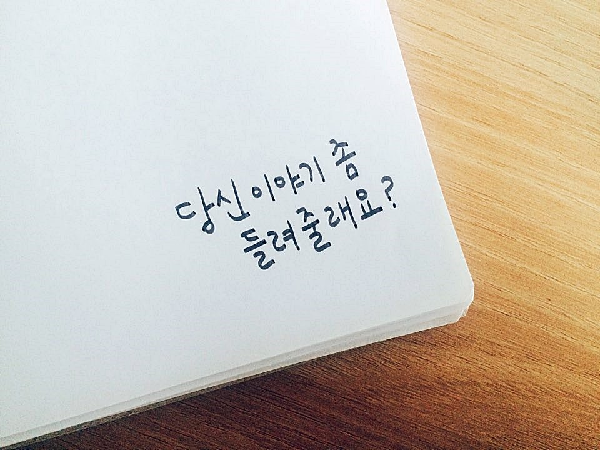 당신 이야기 좀
들려줄래요?